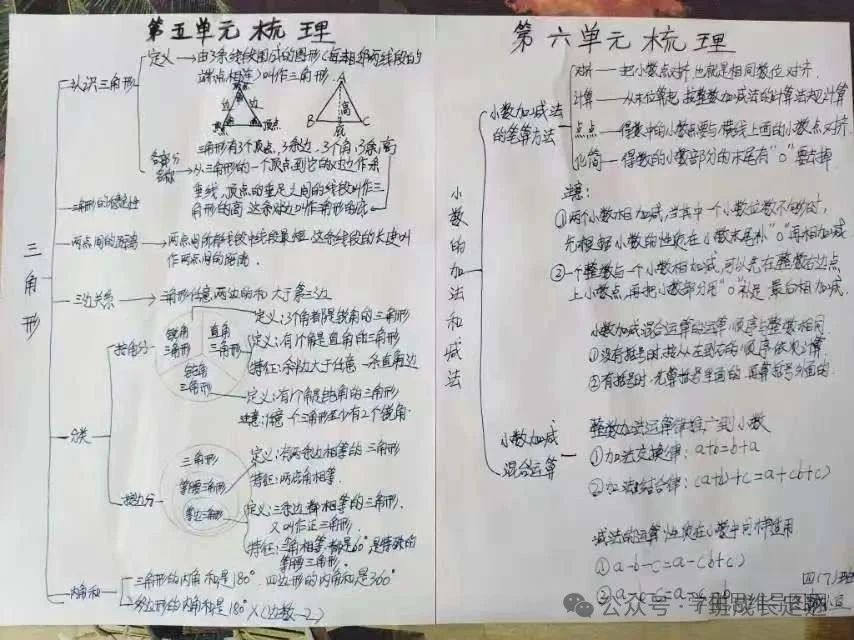 第五单元梳理
三角形
认识三角形
定义
由3条线段围成的图形(每相邻两线段的
端点相连)叫作三角形.
顶点
边
角
边
顶点
边
顶点
A
高
B
底
C
各部分
名称
三角形有3个顶点,3条边,3个角,3条高
从三角形的一个顶点到它的对边作条
垂线,顶点的垂足之间的线段叫作三
角形的高,这条对边叫作三角形的底
三角形的稳定性
两点间的距离
两点间所有线段中线段最短,这条线段的长度叫
作两点间的距离.
三边关系
三角形任意两边的和大于第三边
分类
按角分
锐角
三角形
直角
三角形
钝角
三角形
定义:3个角都是锐角的三角形
定义:有1个角是直角的三角形
特征:斜边大于任意一条直角边
定义:有1个角是钝角的三角形
注意:任意一个三角形至少有2个锐角.
按边分
三角形
等腰三角形
等边三角形
定义:有两条边相等的三角形
特征:两底角相等.
定义:三条边都相等的三角形.
又叫作正三角形.
特征:三角相等,都是60°,是特殊的
等腰三角形.
内角和
三角形的内角和是180°.四边形的内角和是360°
多边形的内角和是180°×(边数-2)
第六单元梳理
小数的加法和减法
小数加减法
的笔算方法
对齐—把小数点对齐,也就是相同数位对齐.
计算—从末位算起,按整数加减法的计算法则计算
点点—得数中的小数点要与横线上面的小数点对齐.
化简—得数的小数部分的末尾有"0"要去掉
注意:
①两个小数相加减,当其中一个小数位数不够时,
先根据小数的性质在小数末尾补"0"再相加减
②一个整数与一个小数相加减,可以先在整数右边点
上小数点,再把小数部分用"0"补足,最后相加减.
小数加减
混合运算
小数加减混合运算的运算顺序与整数相同.
①没有括号时,按从左到右的顺序依次计算.
②有括号时,先算括号里面的,再算括号外面的.
整数加法运算律推广到小数
①加法交换律:a+b=b+a
②加法结合律:(a+b)+c=a+(b+c)
减法的运算性质在小数中同样适用
①a-b-c=a-(b+c)
②a-b-c=a-c-b
四(7)班
公众号·学班成长足迹